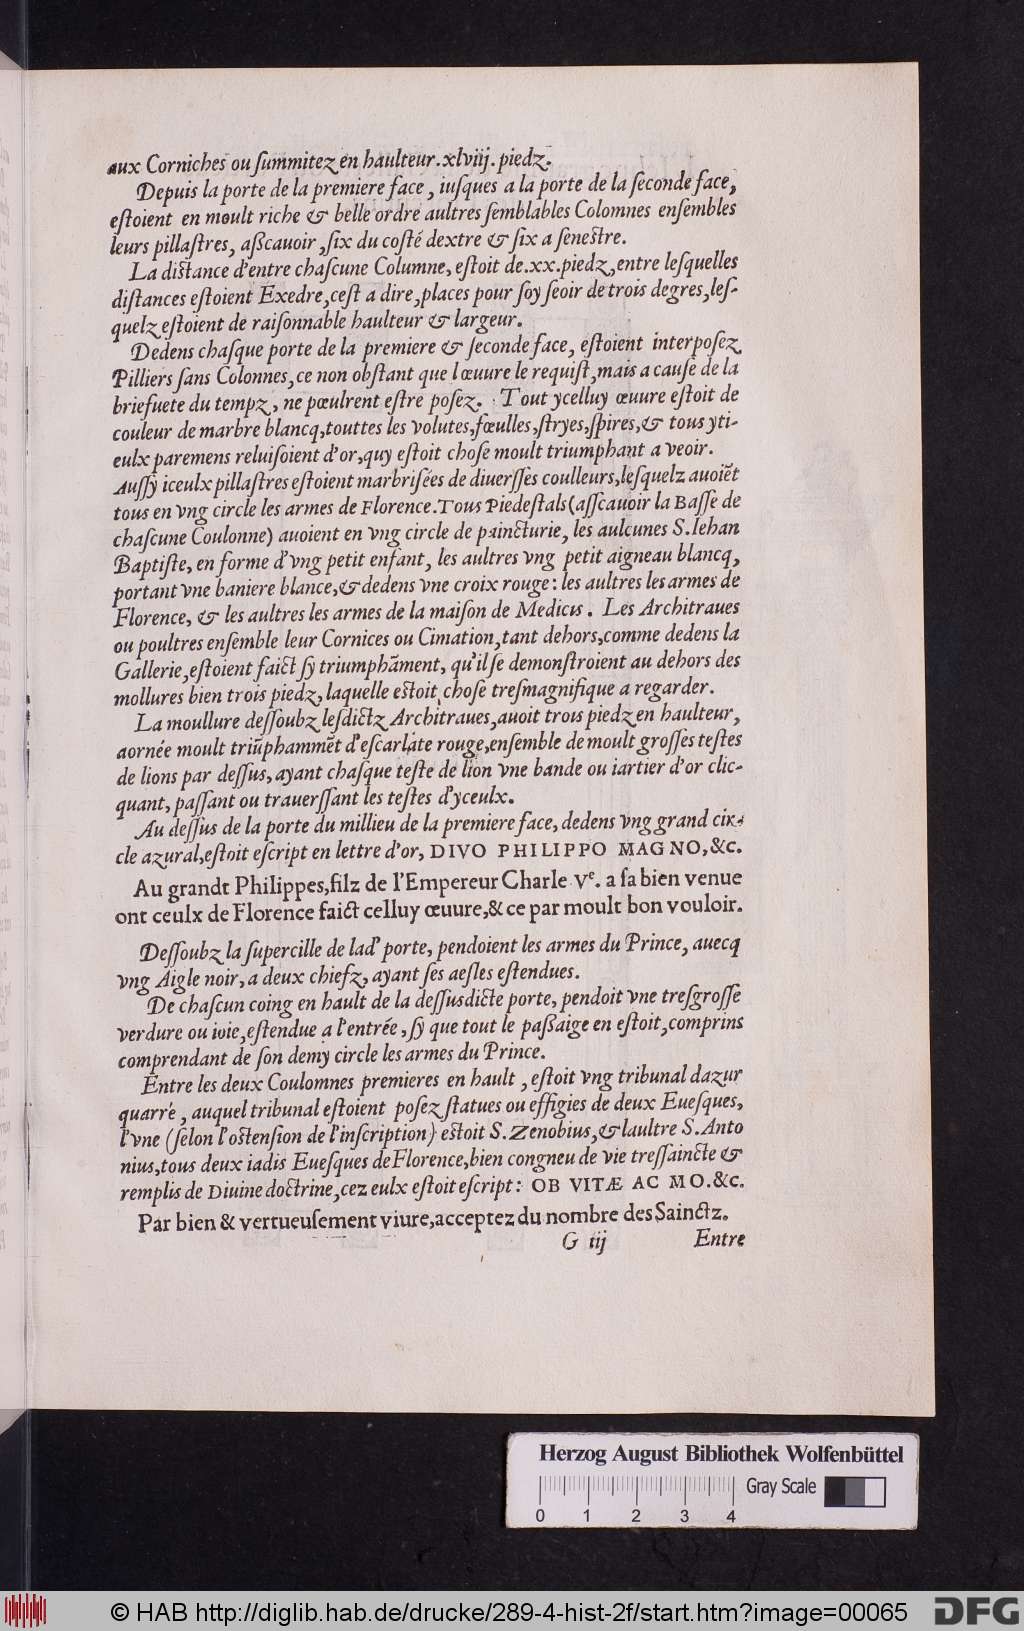 aux Corniches ou ſummitez en haulteur.xlviij.piedz.
Depuis la porte de la premiere face, iuſques a la porte de la ſeconde face,
eſtoient en moult riche & belle ordre aultres ſemblables Colomnes enſembles
leurs pillaſtres, aßcauoir, ſix du coſté dextre & ſix a ſenectre.
La diſtance d'entre chaſcune Columne, eſtoit de.xx.piedz, entre leſquelles
diſtances eſtoient Exedre, ceſt a dire, places pour ſoy ſeoir de trois degres, leſ-
quelz eſtoient de raiſonnable haulteur & largeur.
Dedens chaſque porte de la premiere & ſeconde face, eſtoient interpoſez
Pilliers ſans Colonnes, ce non obſtant que l œuure le requiſt, mais a cauſe de la
briefuete du tempz, ne pœulrent eſtre poſez. Tout ycelluy œuure eſtoit de
couleur de marbre blancq, touttes les volutes, fœulles, ſtryes, ſpires, & tous yti-
eulx paremens reluiſoient d'or, quy eſtoit choſe moult triumphant a veoir.
Auſſy iceulx pillaſtres eſtoient marbriſées de diuerſſes coulleurs, leſquelz auoiẽt
tous en vng circle les armes de Florence. Tous Piedeſtals (aſſcauoir la Baſſe de
chaſcune Coulonne) auoient en vng circle de painctturie, les aulcunes S. Iehan
Baptiſte, en forme d'vng petit enfant, les aultres vng petit aigneau blancq,
portant vne baniere blance, & dedens vne croix rouge: les aultres les armes de
Florence, & les aultres les armes de la maiſon de Medicis. Les Architraues
ou poultres enſemble leur Cornices ou Cimation, tant dehors, comme dedens la
Gallerie, eſtoient faict ſy triumphãment, qu'il ſe demonſtroient au dehors des
mollures bien trois piedz, laquelle eſtoit choſe treſmagnifique a regarder.
La moullure deſſoubz leſdictz Architraues, auoit trois piedz en haulteur,
aornée moult triũphammẽt d'eſcarlate rouge, enſemble de moult groſſes teſtes
de lions par deſſus, ayant chaſque teſte de lion vne bande ou iartier d'or clic-
quant, paſſant ou trauerſſant les teſtes d'yceulx.
Au deſſus de la porte du millieu de la premiere face, dedens vng grand cir-
cle azural, eſtoit eſcript en lettre d'or, DIVO PHILIPPO MAGNO, &c.
Au grandt Philippes, filz de l'Empereur Charle Vᵉ. a ſa bien venue
ont ceulx de Florence faict celluy œuure, & ce par moult bon vouloir.
Deſſoubz la ſupercille de lad' porte, pendoient les armes du Prince, auecq
vng Aigle noir, a deux chiefz, ayant ſes aeſles eſtendues.
De chaſcun coing en hault de la deſſusdicte porte, pendoit vne treſgroſſe
verdure ou ioie, eſtendue a l'entrée, ſy que tout le paßaige en eſtoit, comprins
comprendant de ſon demy circle les armes du Prince.
Entre les deux Coulomnes premieres en hault, eſtoit vng tribunal dazur
quarré, auquel tribunal eſtoient poſez ſtatues ou effigies de deux Eueſques,
l'vne (ſelon l'oſtenſion de l'inſcription) eſtoit S. Zenobius, & laultre S. Anto
nius, tous deux iadis Eueſques de Florence, bien congneu de vie treſſaincte &
remplis de Diuine doctrine, cez eulx eſtoit eſcript: OB VITÆ AC MO. &c.
Par bien & vertueuſement viure, acceptez du nombre des Sainctz.
G iij Entre
Herzog August Bibliothek Wolfenbüttel
Gray Scale
0 1 2 3 4
© HAB http://diglib.hab.de/drucke/289-4-hist-2f/start.htm?image=00065 DFG